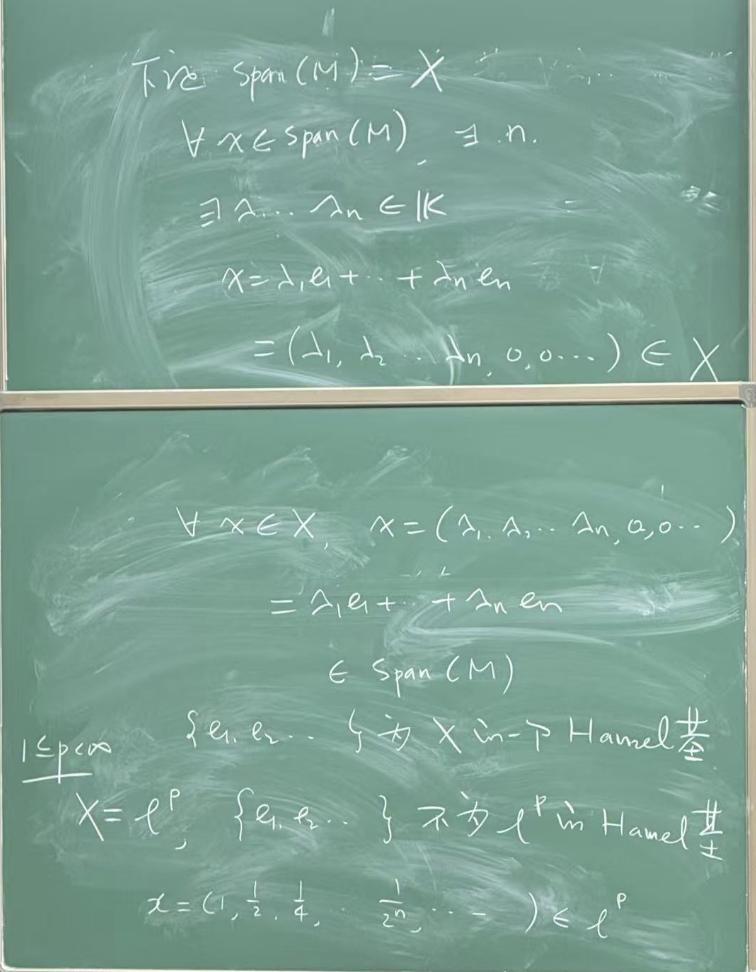 下证 span(M) = X
∀ x ∈ span(M), ∃ n.
∃ λ... λn ∈ 𝕂
x = λ₁e₁ + ... + λₙeₙ
= (λ₁, λ₂ ... λₙ, 0, 0 ...) ∈ X
∀ x ∈ X, x = (λ₁, λ₂ ... λₙ, 0, 0 ...)
= λ₁e₁ + ... + λₙeₙ
∈ span(M)
{e₁, e₂ ... } 为 X 的一个 Hamel 基
1 ≤ p < ∞
X = ℓᵖ, {e₁, e₂ ... } 不为 ℓᵖ 的 Hamel 基
x = (1, 1/2, 1/4, ... 1/2ⁿ, ... ) ∈ ℓᵖ